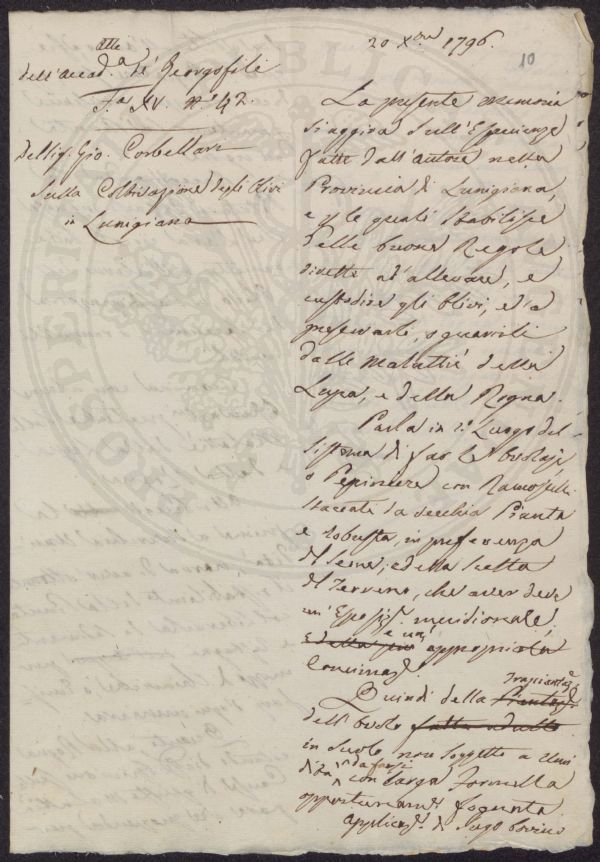 20 Xbre 1796.
10
Atti
dell'Accad.a de' Georgofili
F.a XV. N.o 42.
Del Sig. Gio. Corbellani
Sulla Coltivazione degli Olivi
in Lunigiana
La presente memoria
si aggira sull'Esperienze
fatte dall'autore nella
Provincia di Lunigiana,
e p le quali stabilisce
delle buone Regole
dirette ad allevare, e
custodire gli Olivi, ed a
preservarli, o guarirli
dalle Malattie della
Lupa, e della Rogna.
Parla in 1.o Luogo del
sistema di far le
o Pepiniere con Ramoscelli
staccati da vecchia Pianta
e robusta, in preferenza
del seme; e della scelta
del Terreno, che aver deve
un' Esposiz.e meridionale,
e una
E della più appropriata
Concimaz.e
Trapiantaz.e
Quindi della
dell'
in suolo non soggetto a Umi
dità con larga Formella
opportunam.e
applicaz.e di Sugo bovino